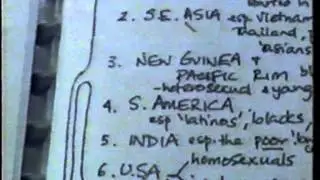 2. S.E. ASIA esp. Vietnam
Thailand,
'asians
3. NEW GUINEA &
PACIFIC RIM
- heterosexual & young
4. S. AMERICA,
esp 'latinos', blacks,
5. INDIA esp. the poor
homosexuals
6. U.S.A